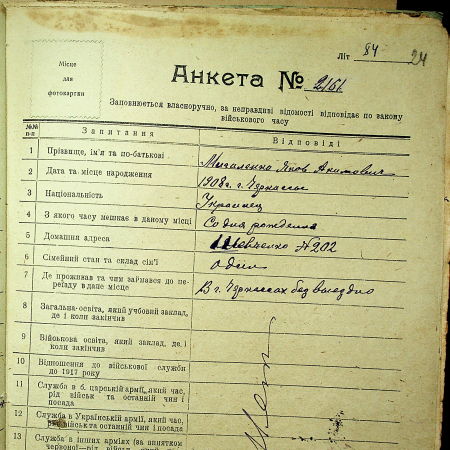 Літ 84
24
Місце
для
фотокартки
Анкета № 2161
Заповнюється власноручно, за неправдиві відомості відповідає по закону
військового часу
№№
п-п
Запитання
Відповіді
1 Прізвище, ім'я та по-батькові
Михаленко Яков Акимович
2 Дата та місце народження
1908 г. г. Черкассы
3 Національність
Украинец
4 З якого часу мешкає в даному місці
Со дня рождения
5 Домашня адреса
Шевченко № 202
6 Сімейний стан та склад сім'ї
один
7 Де проживав та чим займався до переїзду в дане місце
В г. Черкассах безвыездно
8 Загальна освіта, який учбовий заклад,
де і коли закінчив
9 Військова освіта, який заклад, де і
коли закінчив
10 Відношення до військової служби
до 1917 року
11 Служба в б. царській армії, який час,
рід військ та останній чин і
посада
12 Служба в Українській армії, який час,
рід військ та останній чин і посада
13 Служба в інших арміях (за винятком